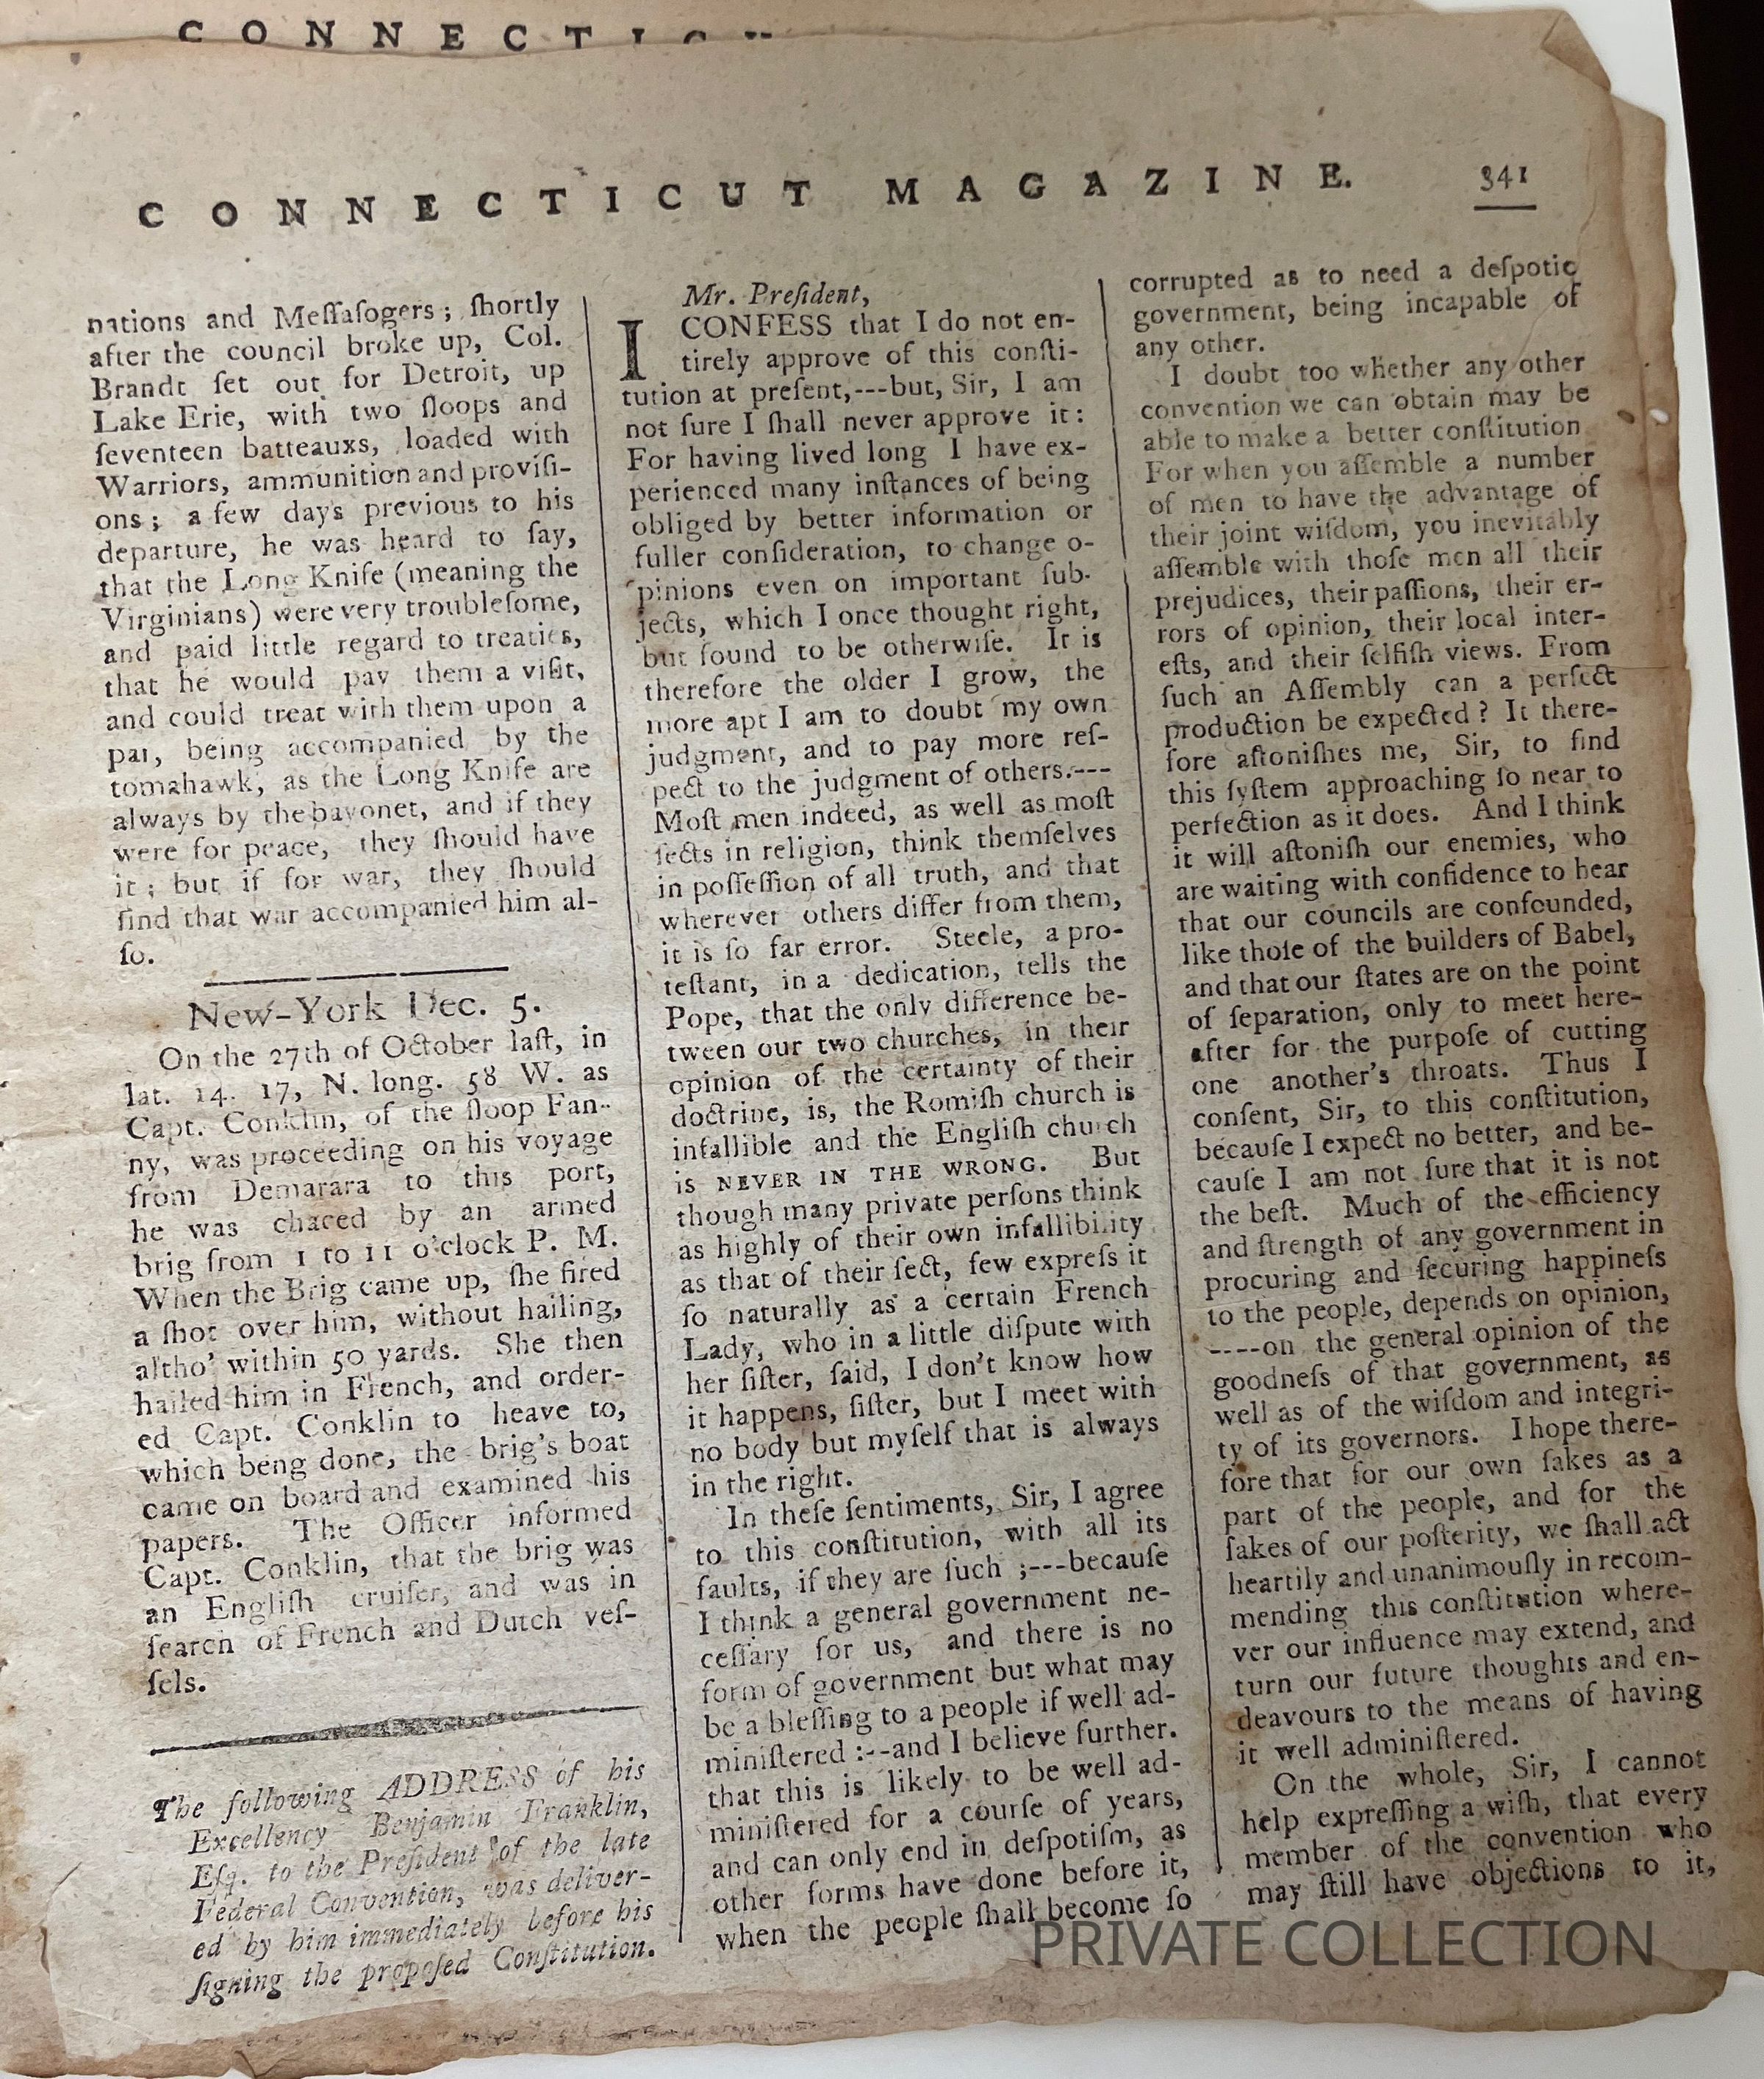 CONNECTICU
CONNECTICUT MAGAZINE. 341
nations and Meſſaſogers; ſhortly
after the council broke up, Col.
Brandt ſet out for Detroit, up
Lake Erie, with two ſloops and
ſeventeen batteauxs, loaded with
Warriors, ammunition and proviſi-
ons; a few days previous to his
departure, he was heard to ſay,
that the Long Knife (meaning the
Virginians) were very troubleſome,
and paid little regard to treaties,
that he would pay them a viſit,
and could treat with them upon a
par, being accompanied by the
tomahawk, as the Long Knife are
always by the bayonet, and if they
were for peace, they ſhould have
it; but if for war, they ſhould
find that war accompanied him al-
ſo.
New-York Dec. 5.
On the 27th of October laſt, in
lat. 14. 17, N. long. 58 W. as
Capt. Conklin, of the ſloop Fan-
ny, was proceeding on his voyage
from Demarara to this port,
he was chaced by an armed
brig from 1 to 11 o'clock P. M.
When the Brig came up, ſhe fired
a ſhot over him, without hailing,
altho' within 50 yards. She then
hailed him in French, and order-
ed Capt. Conklin to heave to,
which beng done, the brig's boat
came on board and examined his
papers. The Officer informed
Capt. Conklin, that the brig was
an Engliſh cruiſer, and was in
ſearch of French and Dutch veſ-
ſels.
The following ADDRESS of his
Excellency Benjamin Franklin,
Eſq. to the Preſident of the late
Federal Convention, was deliver-
ed by him immediately before his
ſigning the propoſed Conſtitution.
Mr. Preſident,
I CONFESS that I do not en-
tirely approve of this conſti-
tution at preſent,---but, Sir, I am
not ſure I ſhall never approve it:
For having lived long I have ex-
perienced many inſtances of being
obliged by better information or
fuller conſideration, to change o-
pinions even on important ſub-
jects, which I once thought right,
but found to be otherwiſe. It is
therefore the older I grow, the
more apt I am to doubt my own
judgment, and to pay more reſ-
pect to the judgment of others.---
Moſt men indeed, as well as moſt
ſects in religion, think themſelves
in poſſeſſion of all truth, and that
wherever others differ from them,
it is ſo far error. Steele, a pro-
teſtant, in a dedication, tells the
Pope, that the only difference be-
tween our two churches, in their
opinion of the certainty of their
doctrine, is, the Romiſh church is
infallible and the Engliſh church
is NEVER IN THE WRONG. But
though many private perſons think
as highly of their own infallibility
as that of their ſect, few expreſs it
ſo naturally as a certain French
Lady, who in a little diſpute with
her ſiſter, ſaid, I don't know how
it happens, ſiſter, but I meet with
no body but myſelf that is always
in the right.
In theſe ſentiments, Sir, I agree
to this conſtitution, with all its
faults, if they are ſuch;---becauſe
I think a general government ne-
ceſſary for us, and there is no
form of government but what may
be a bleſſing to a people if well ad-
miniſtered:--and I believe further.
that this is likely to be well ad-
miniſtered for a courſe of years,
and can only end in deſpotiſm, as
other forms have done before it,
when the people ſhall become ſo
corrupted as to need a deſpotic
government, being incapable of
any other.
I doubt too whether any other
convention we can obtain may be
able to make a better conſtitution
For when you aſſemble a number
of men to have the advantage of
their joint wiſdom, you inevitably
aſſemble with thoſe men all their
prejudices, their paſſions, their er-
rors of opinion, their local inter-
eſts, and their ſelfiſh views. From
ſuch an Aſſembly can a perfect
production be expected? It there-
fore aſtoniſhes me, Sir, to find
this ſyſtem approaching ſo near to
perfection as it does. And I think
it will aſtoniſh our enemies, who
are waiting with confidence to hear
that our councils are confounded,
like thoſe of the builders of Babel,
and that our ſtates are on the point
of ſeparation, only to meet here-
after for the purpoſe of cutting
one another's throats. Thus I
conſent, Sir, to this conſtitution,
becauſe I expect no better, and be-
cauſe I am not ſure that it is not
the beſt. Much of the efficiency
and ſtrength of any government in
procuring and ſecuring happineſs
to the people, depends on opinion,
----on the general opinion of the
goodneſs of that government, as
well as of the wiſdom and integri-
ty of its governors. I hope there-
fore that for our own ſakes as a
part of the people, and for the
ſakes of our poſterity, we ſhall act
heartily and unanimouſly in recom-
mending this conſtitution where-
ver our influence may extend, and
turn our future thoughts and en-
deavours to the means of having
it well adminiſtered.
On the whole, Sir, I cannot
help expreſſing a wiſh, that every
member of the convention who
may ſtill have objections to it,
PRIVATE COLLECTION